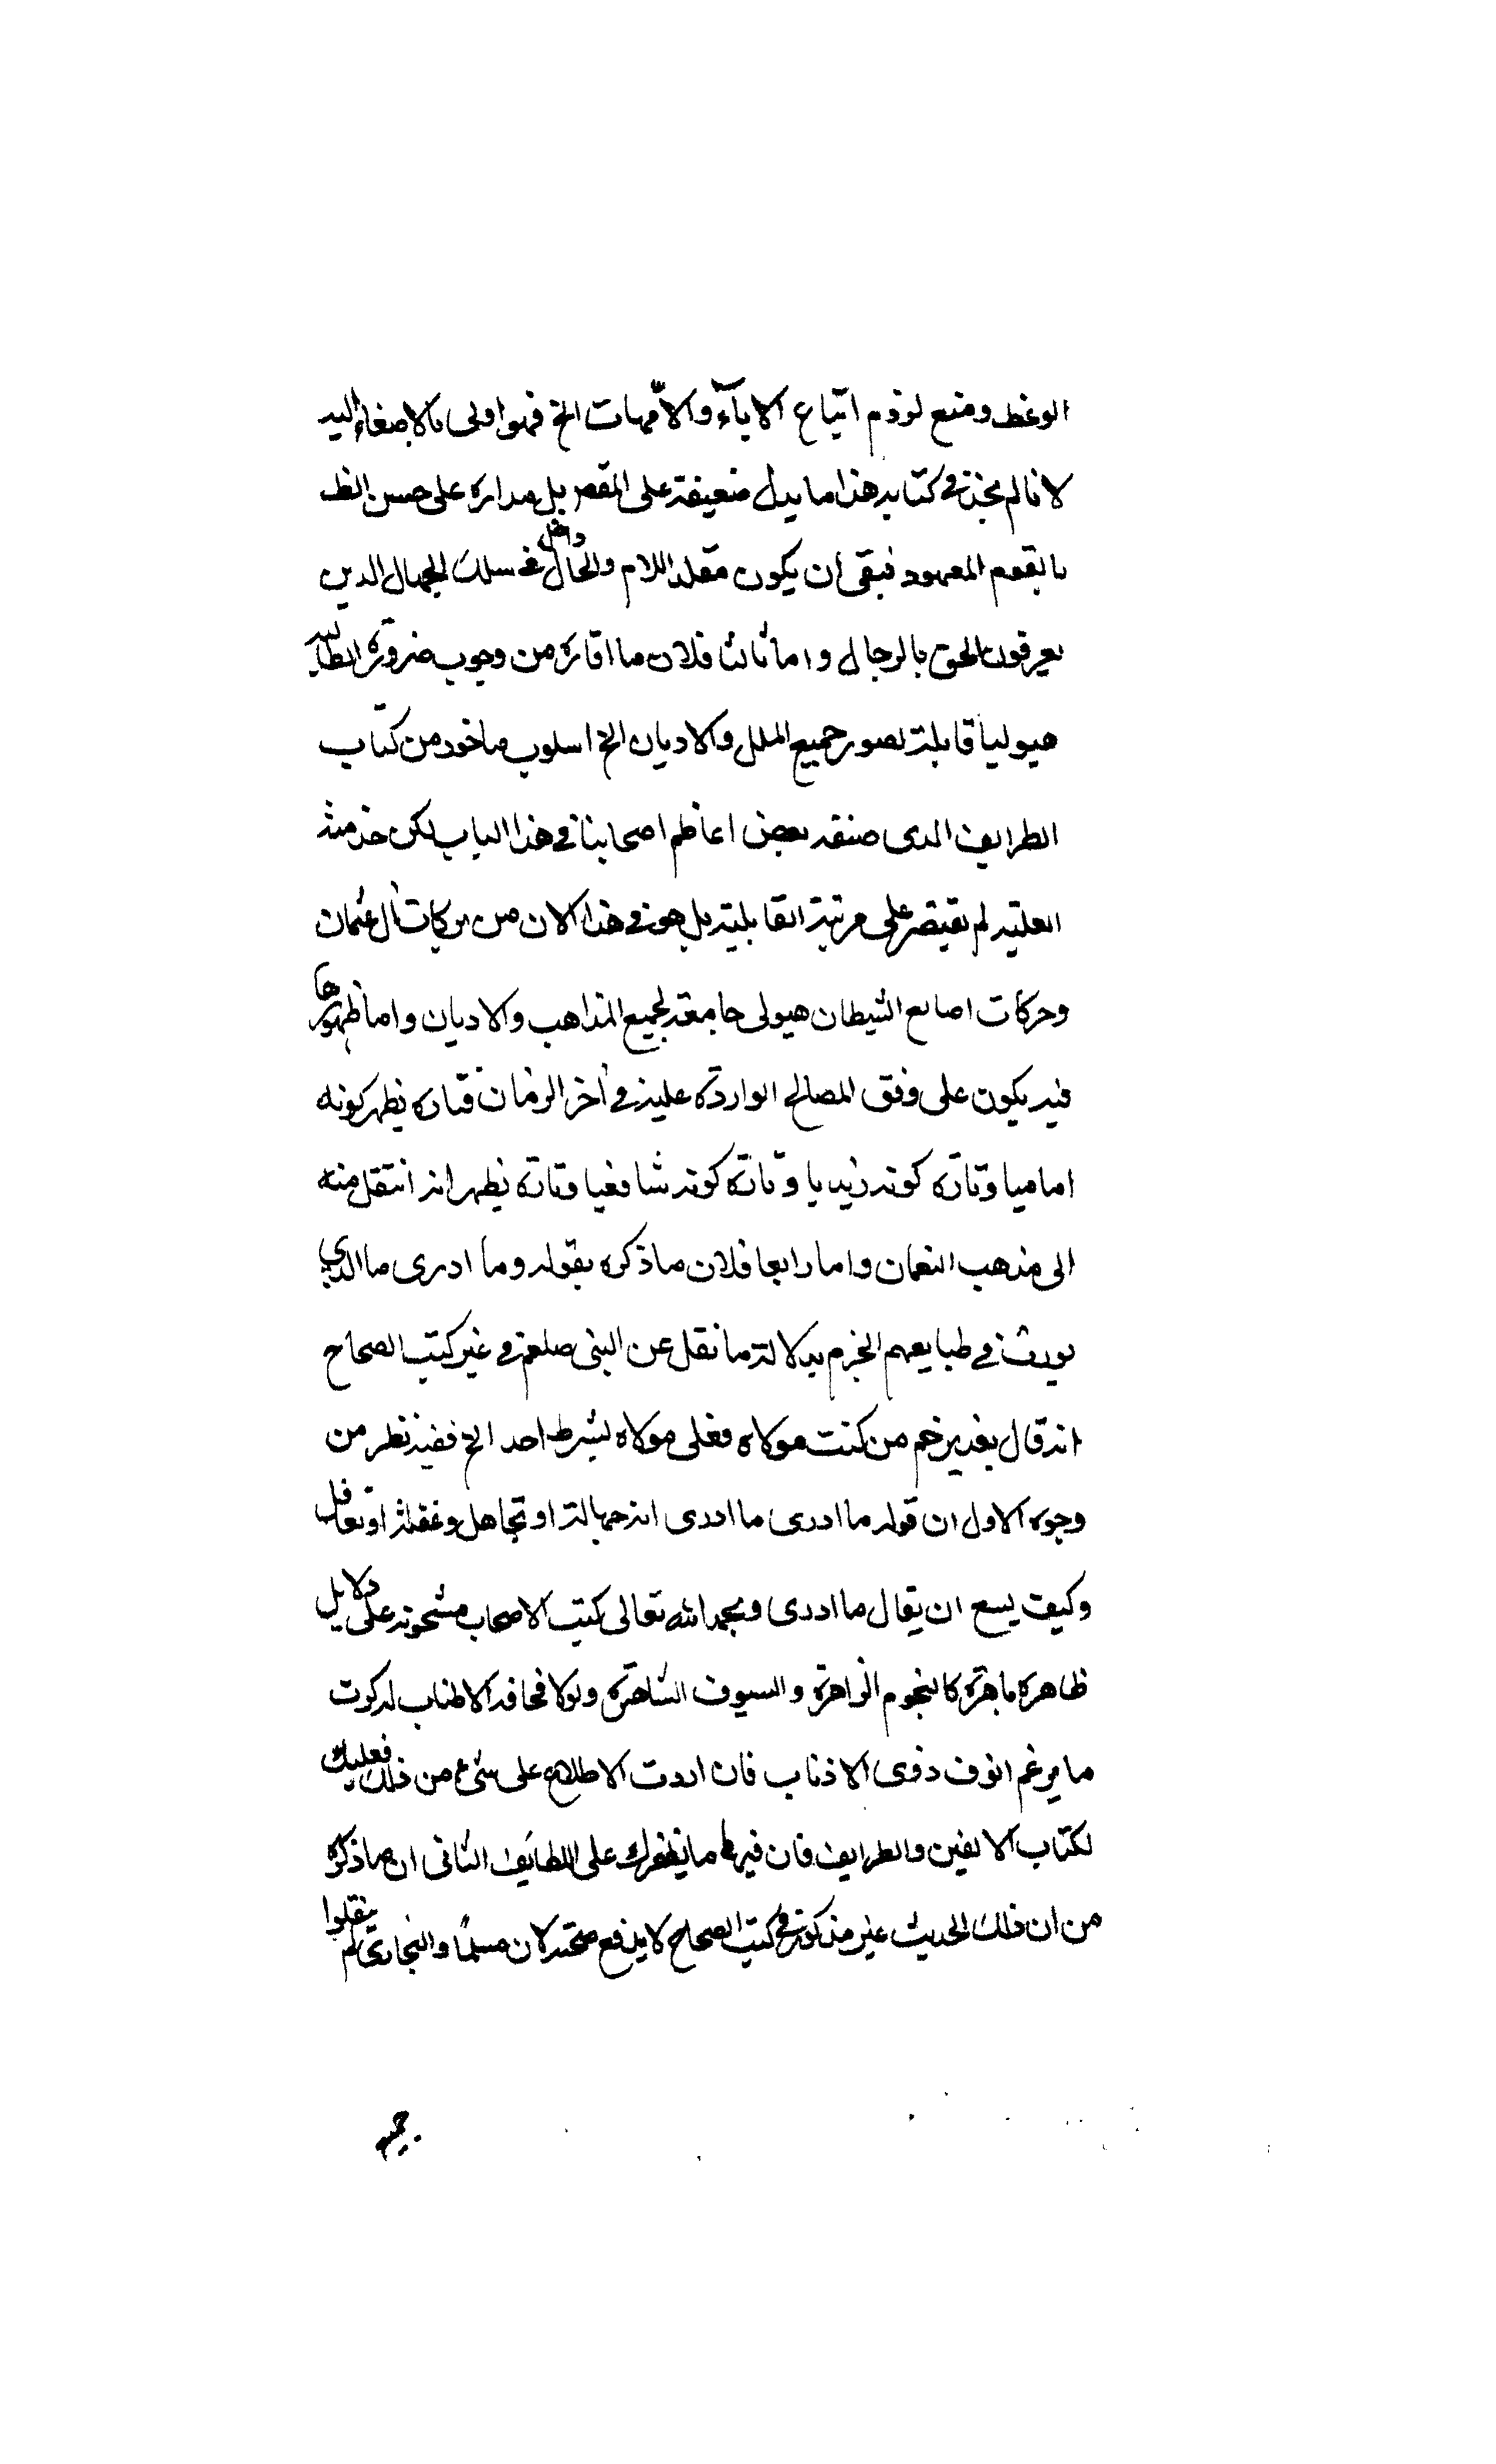 الوعظ ومنع لزوم اتباع الاباء والامهات الخ فهو اولى بالاصغاء اليه
لانا لم نجد في كتابه هذا ما يدل ضعيفة على المقص بل مداره على حسن الظن
بالقوم المعهود فبقى ان يكون مقلد اللام والحال داخل في سلك الجهال الذين
يعرفون الحق بالرجال واما ثالثا فلان ما افاده من وجوب ضرورة الطالب
هيوليا قابلة لصور جميع الملل والاديان الخ اسلوب ماخوذ من كتاب
الطرايف الذى صنفه بعض اعاظم اصحابنا في هذا الباب لكن خدمته
العلية لم يقتصر على مرتبة القابلية بل هو في هذا الان من بركات آل عثمان
وحركات اصابع الشيطان هيولى جامعة لجميع المذاهب والاديان واما ظهورها
فيه يكون على وفق المصالح الواردة عليه في آخر الزمان فتارة يظهر كونه
اماميا وتارة كونه زيديا وتارة كونه شافعيا وتارة يظهر انه انتقل منه
الى مذهب النعمان واما رابعا فلان ما ذكره بقوله وما ادرى ما الذي
يورث في طبايعهم الجزم بدلالة ما نقل عن النبى صلعم في غير كتب الصحاح
انه قال بغدير خم من كنت مولاه فعلى مولاه بشرط احد الخ ففيه نظر من
وجوه الاول ان قوله ما ادرى ما ادرى انه جهالة او تجاهل وغفلة او تغافل
وكيف يسع ان يقال ما ادرى وبحمد الله تعالى كتب الاصحاب مشحونة على دلايل
ظاهرة باهرة كالنجوم الزاهرة والسيوف الشاهرة ولولا مخافة الاطناب لذكرت
ما يرغم انوف ذوى الاذناب فان اردت الاطلاع على شئ من ذلك فعليك
لكتاب الالفين والطرايف فان فيها ما يظفرك على اللطايف الثانى ان ما ذكره
من ان ذلك الحديث غير مذكورة في كتب الصحاح لا يدفع صحته لان مسلما والبخارى لم ينقلوا